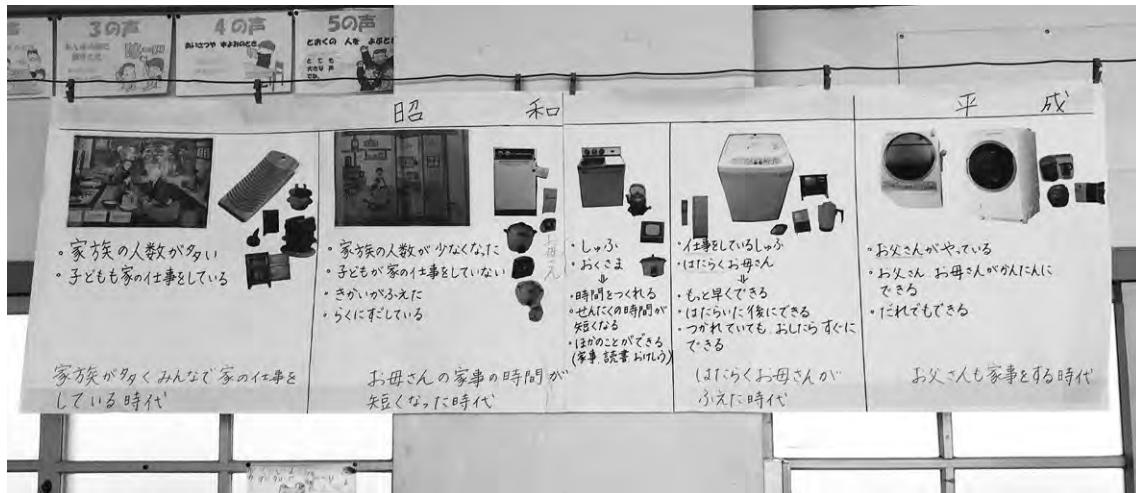 3の声
4の声
あいさつや
5の声
とおくの 人を よぶと
とても
大きな声
昭 和
平 成
・家族の人数が多い
・子どもも家の仕事をしている
家族が多くみんなで家の仕事を
している時代
・家族の人数が少なくなった
・子どもが家の仕事をしていない
・きかいがふえた
・らくにすごしている
お母さんの家事の時間が
短くなった時代
・しゅふ
・おくさま
⇓
・時間をつくれる
・せんたくの時間が
短くなる
・ほかのことができる
(家事.読書.おけしょう)
・仕事をしているしゅふ
・はたらくお母さん
⇓
・もっと早くできる
・はたらいた後にできる
・つかれていても おしたらすぐに
できる
はたらくお母さんが
ふえた時代
・お父さんがやっている
・お父さん お母さんがかんたんに
できる
・だれでもできる
お父さんも家事をする時代